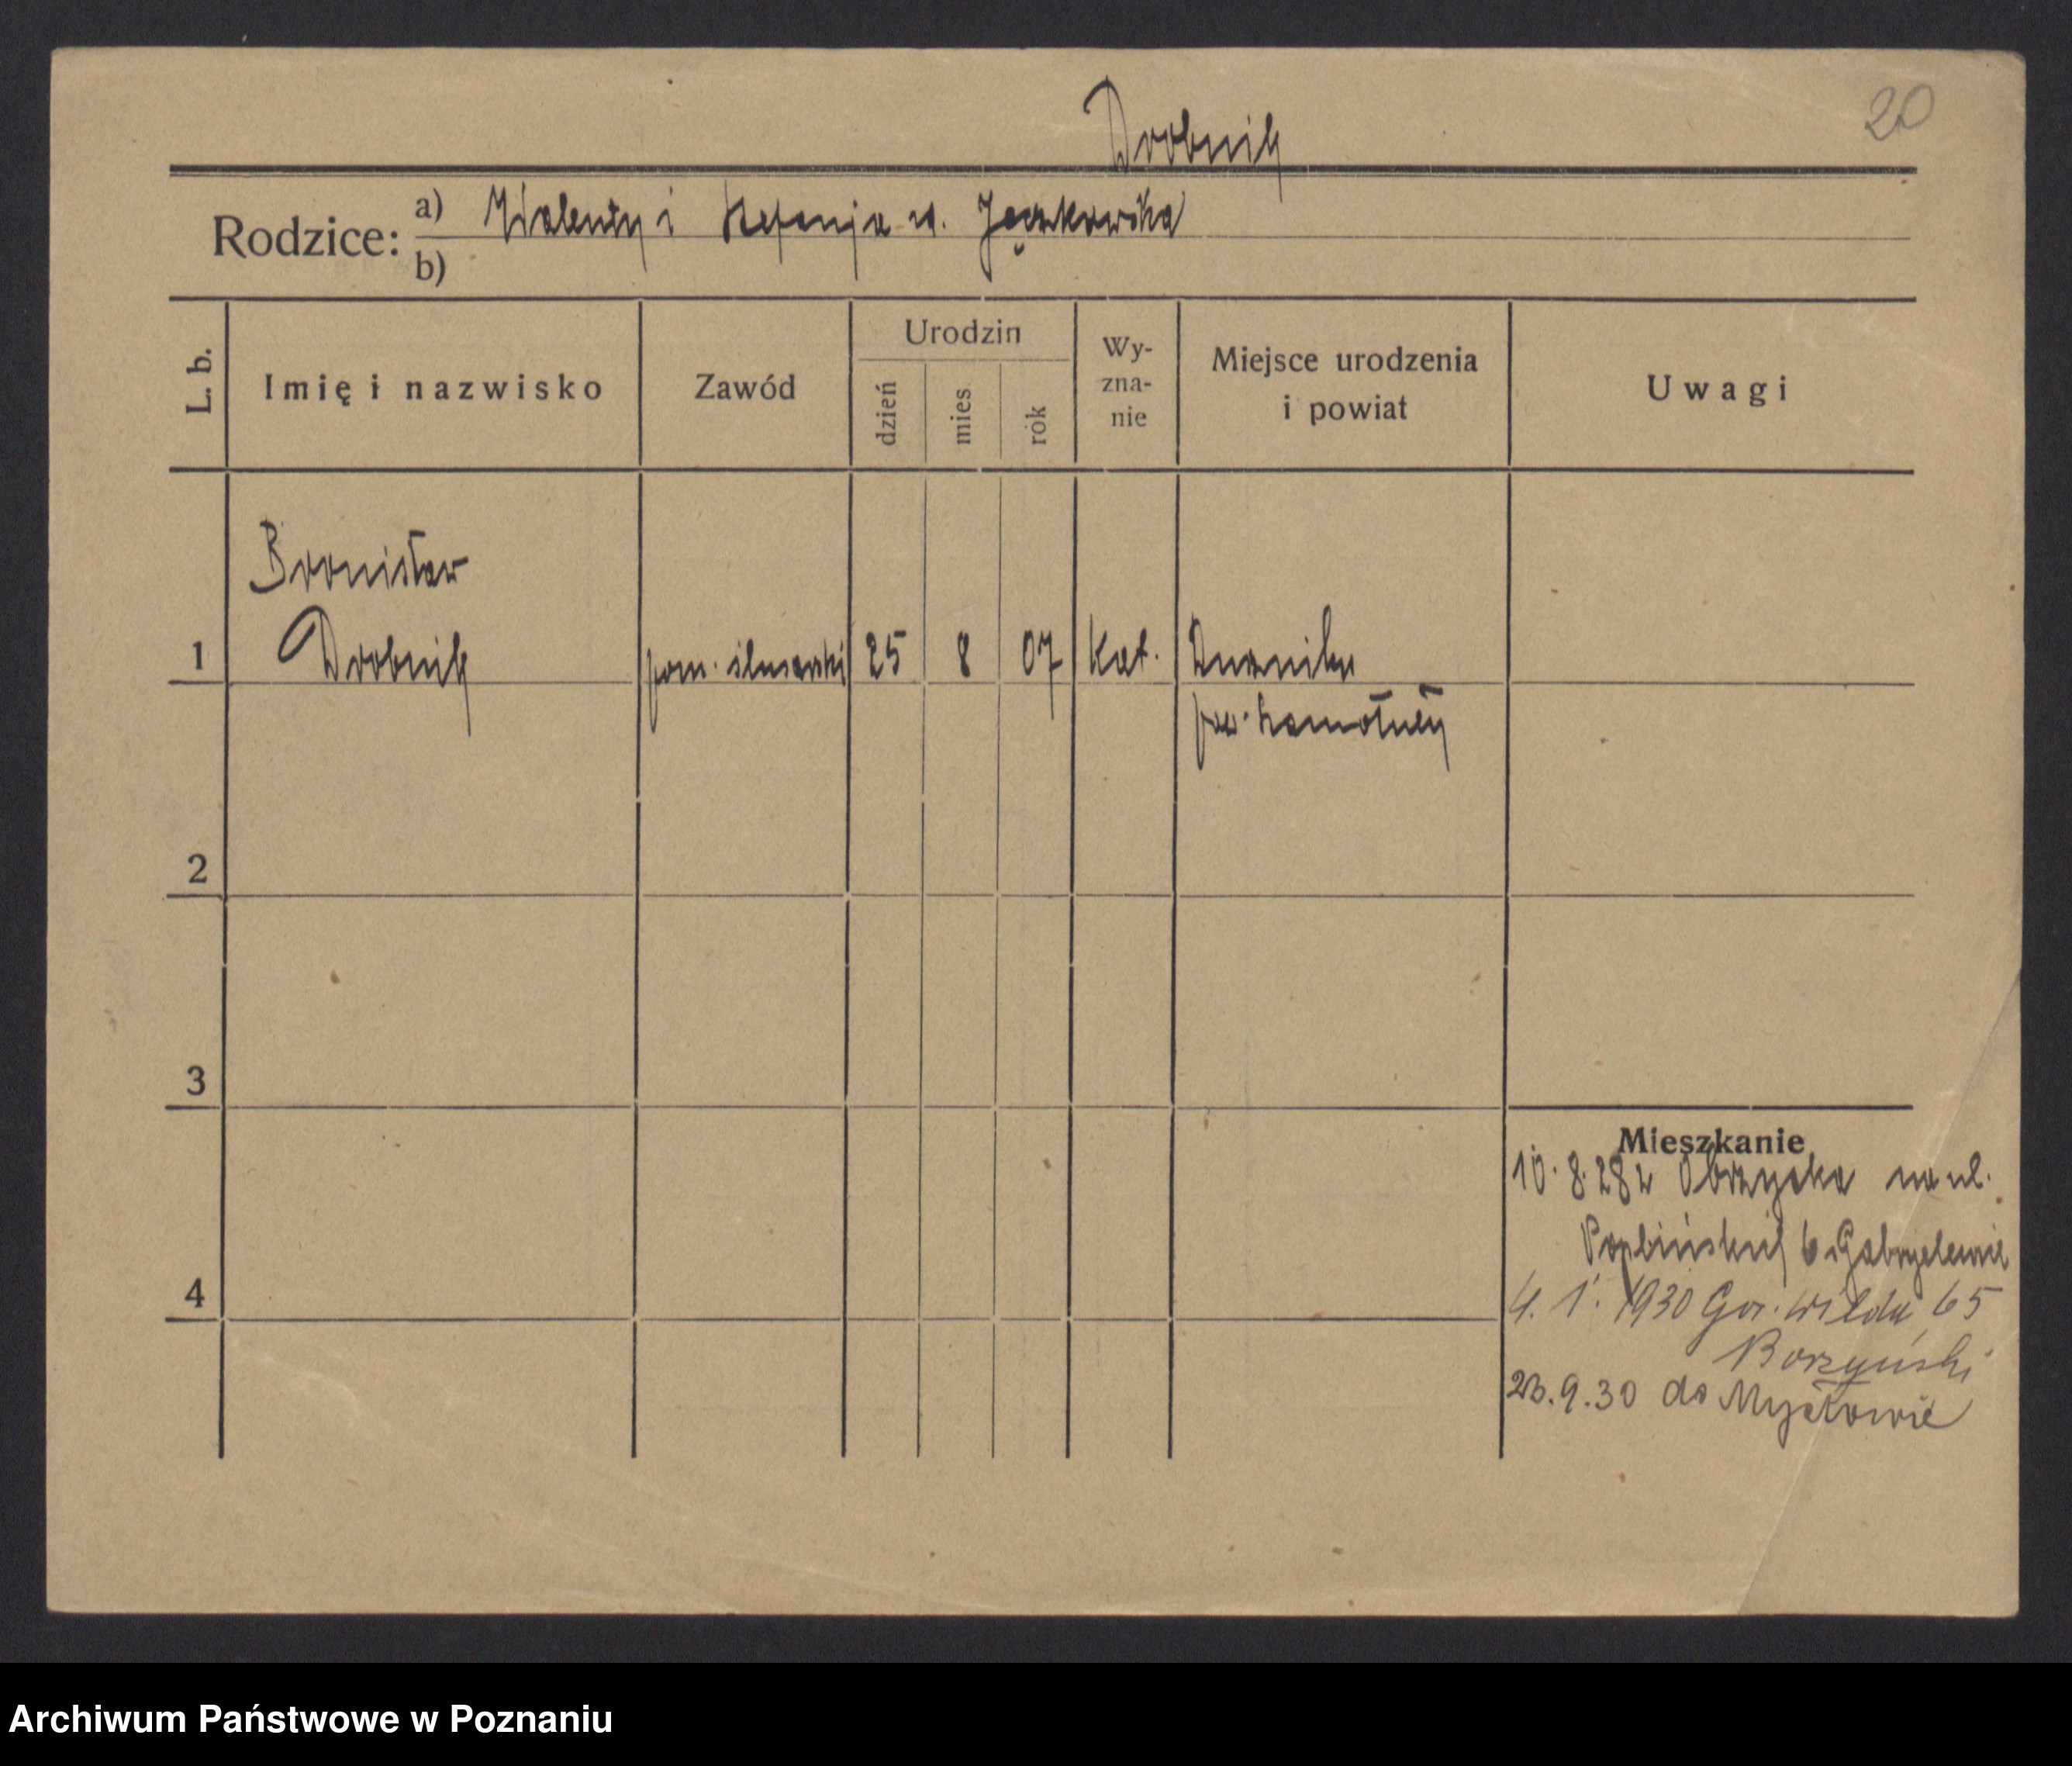 20
Drobnik
Rodzice:
a) Walenty i Stefanja u. Jączkowska
b)
L. b.
Imię i nazwisko
Zawód
Urodzin
dzień
mies.
rok
Wy-
zna-
nie
Miejsce urodzenia
i powiat
Uwagi
Bronisław
1 Drobnik pom. ślusarski 25 8 07 kat.
pow. Szamotuły
2
3
4
Mieszkanie
10.8.28 z Obrzycka na ul.
4. 1. 1930 Gór. Wilda 65
Borzyński
do
Archiwum Państwowe w Poznaniu